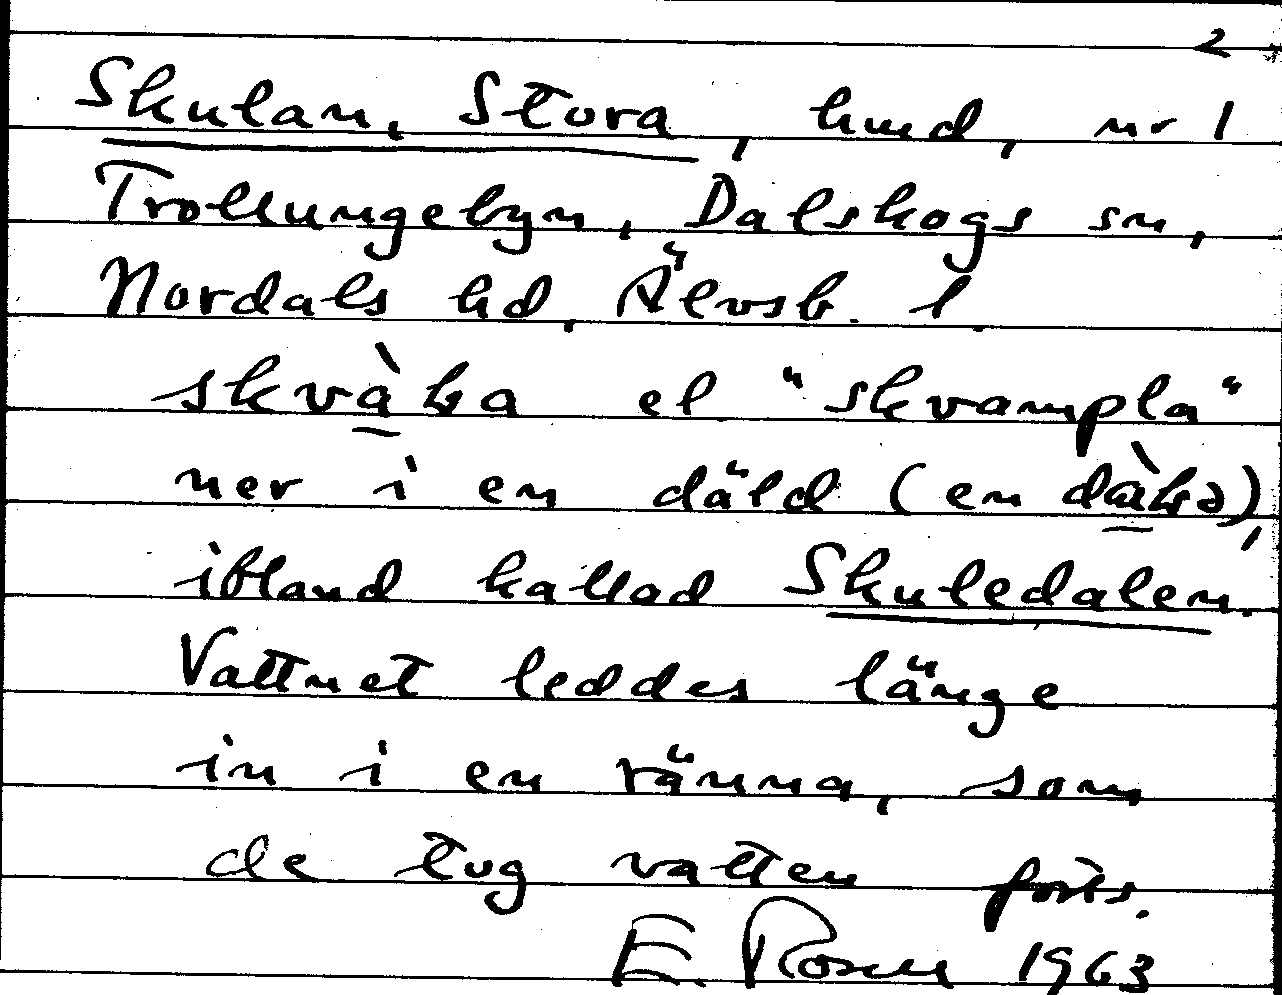 2
Skulan, Stora, hmd, nr 1
Trollungebyn, Dalskogs sn,
Nordals hd, Älvsb. l.
skvàka el "skvampla"
ner i en däld (en dàkə),
ibland kallad Skuledalen.
Vattnet leddes länge
in i en ränna, som
de tog vatten forts.
E. Rosen 1963